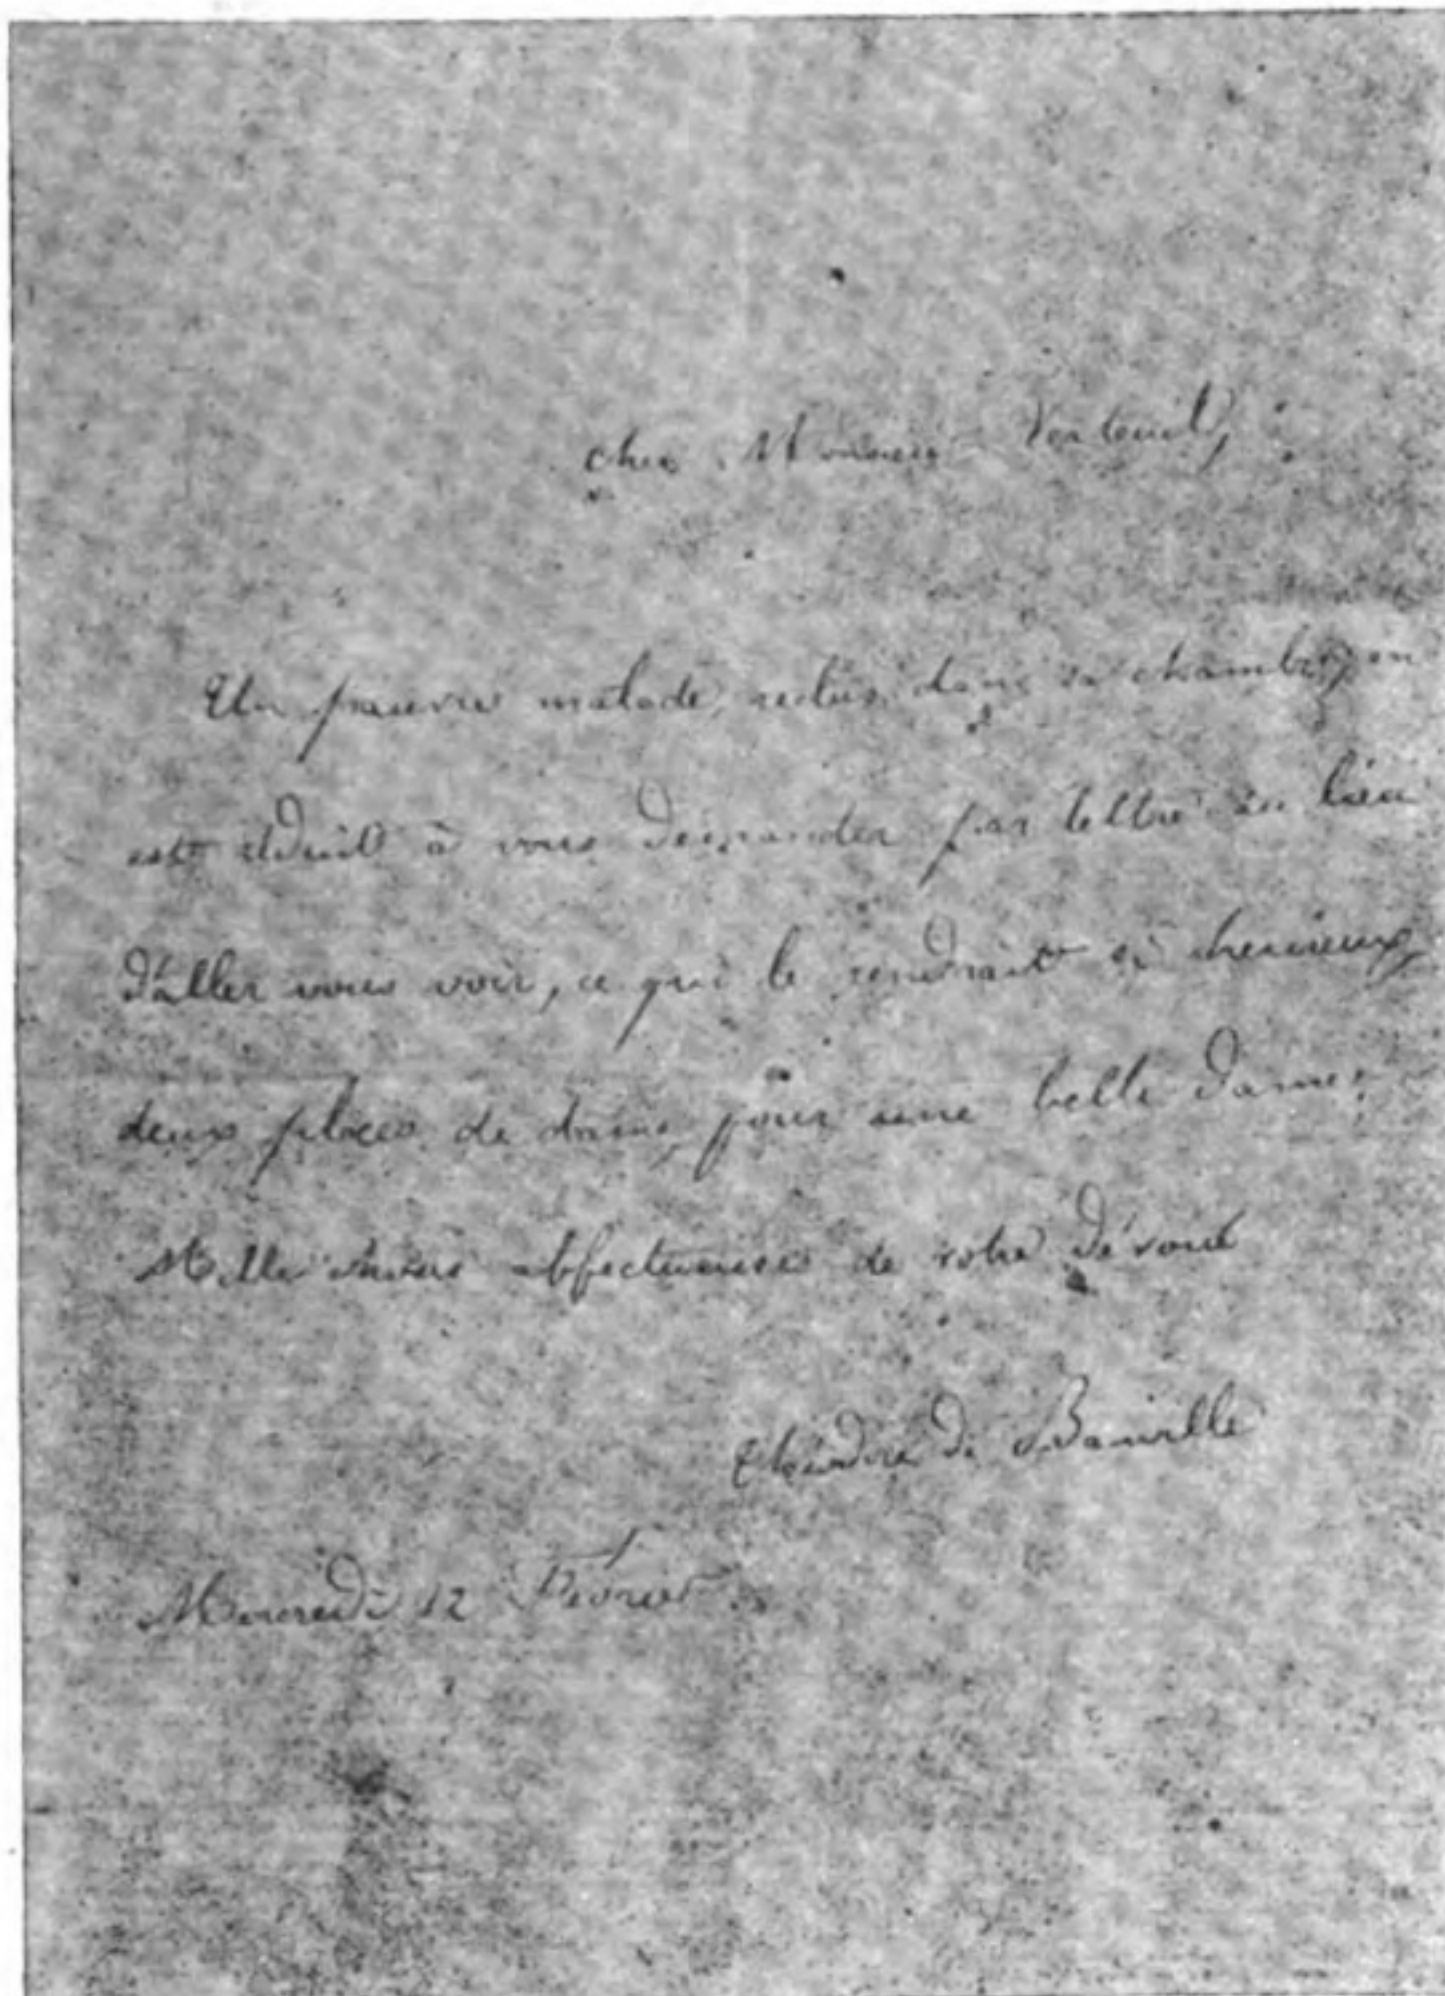 cher Monsieur Verteuil,
Un pauvre malade, reclus dans sa chambre, en
est réduit à vous demander par lettre au lieu
d'aller vous voir, ce qui le rendrait si heureux,
deux places de dames pour une belle dame.
Mille choses affectueuses de votre dévoué
Théodore de Banville
Mercredi 12 Février.